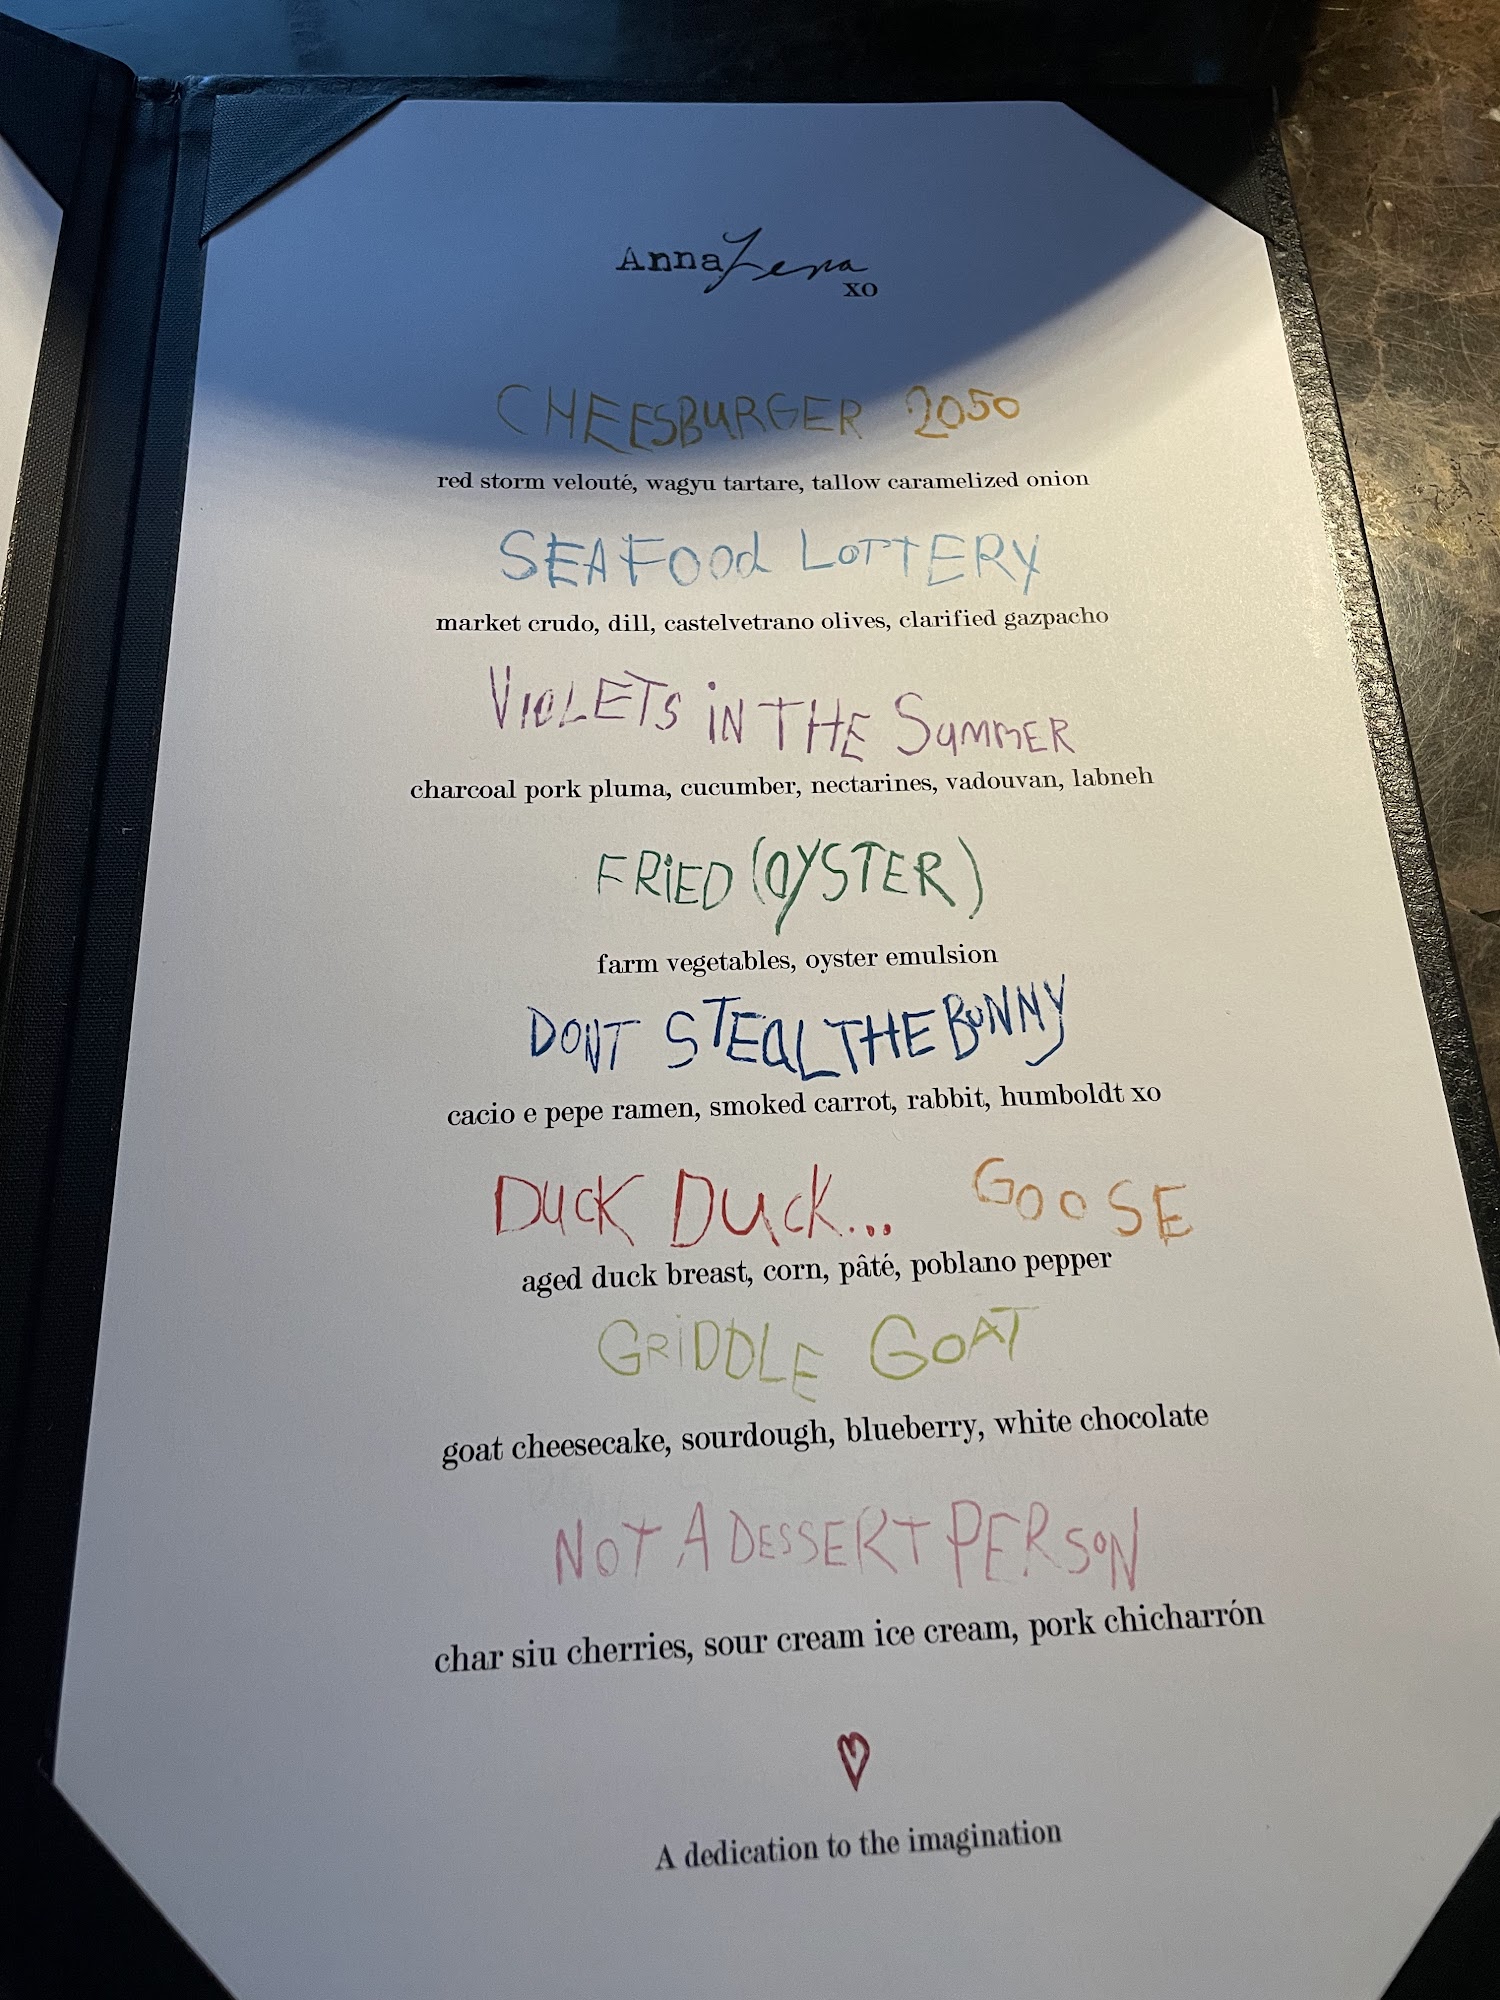 AnnaLena
XO
CHEESBURGER 2050
red storm velouté, wagyu tartare, tallow caramelized onion
SEAFOOd LOTTERY
market crudo, dill, castelvetrano olives, clarified gazpacho
VIOLETS iN THE SUMMER
charcoal pork pluma, cucumber, nectarines, vadouvan, labneh
FRiED (OYSTER)
farm vegetables, oyster emulsion
DONT STEAL THE BUNNY
cacio e pepe ramen, smoked carrot, rabbit, humboldt xo
DUCK DUCK... GOOSE
aged duck breast, corn, pâté, poblano pepper
GRiDDLE GOAT
goat cheesecake, sourdough, blueberry, white chocolate
NOT A DESSERT PERSON
char siu cherries, sour cream ice cream, pork chicharrón
A dedication to the imagination